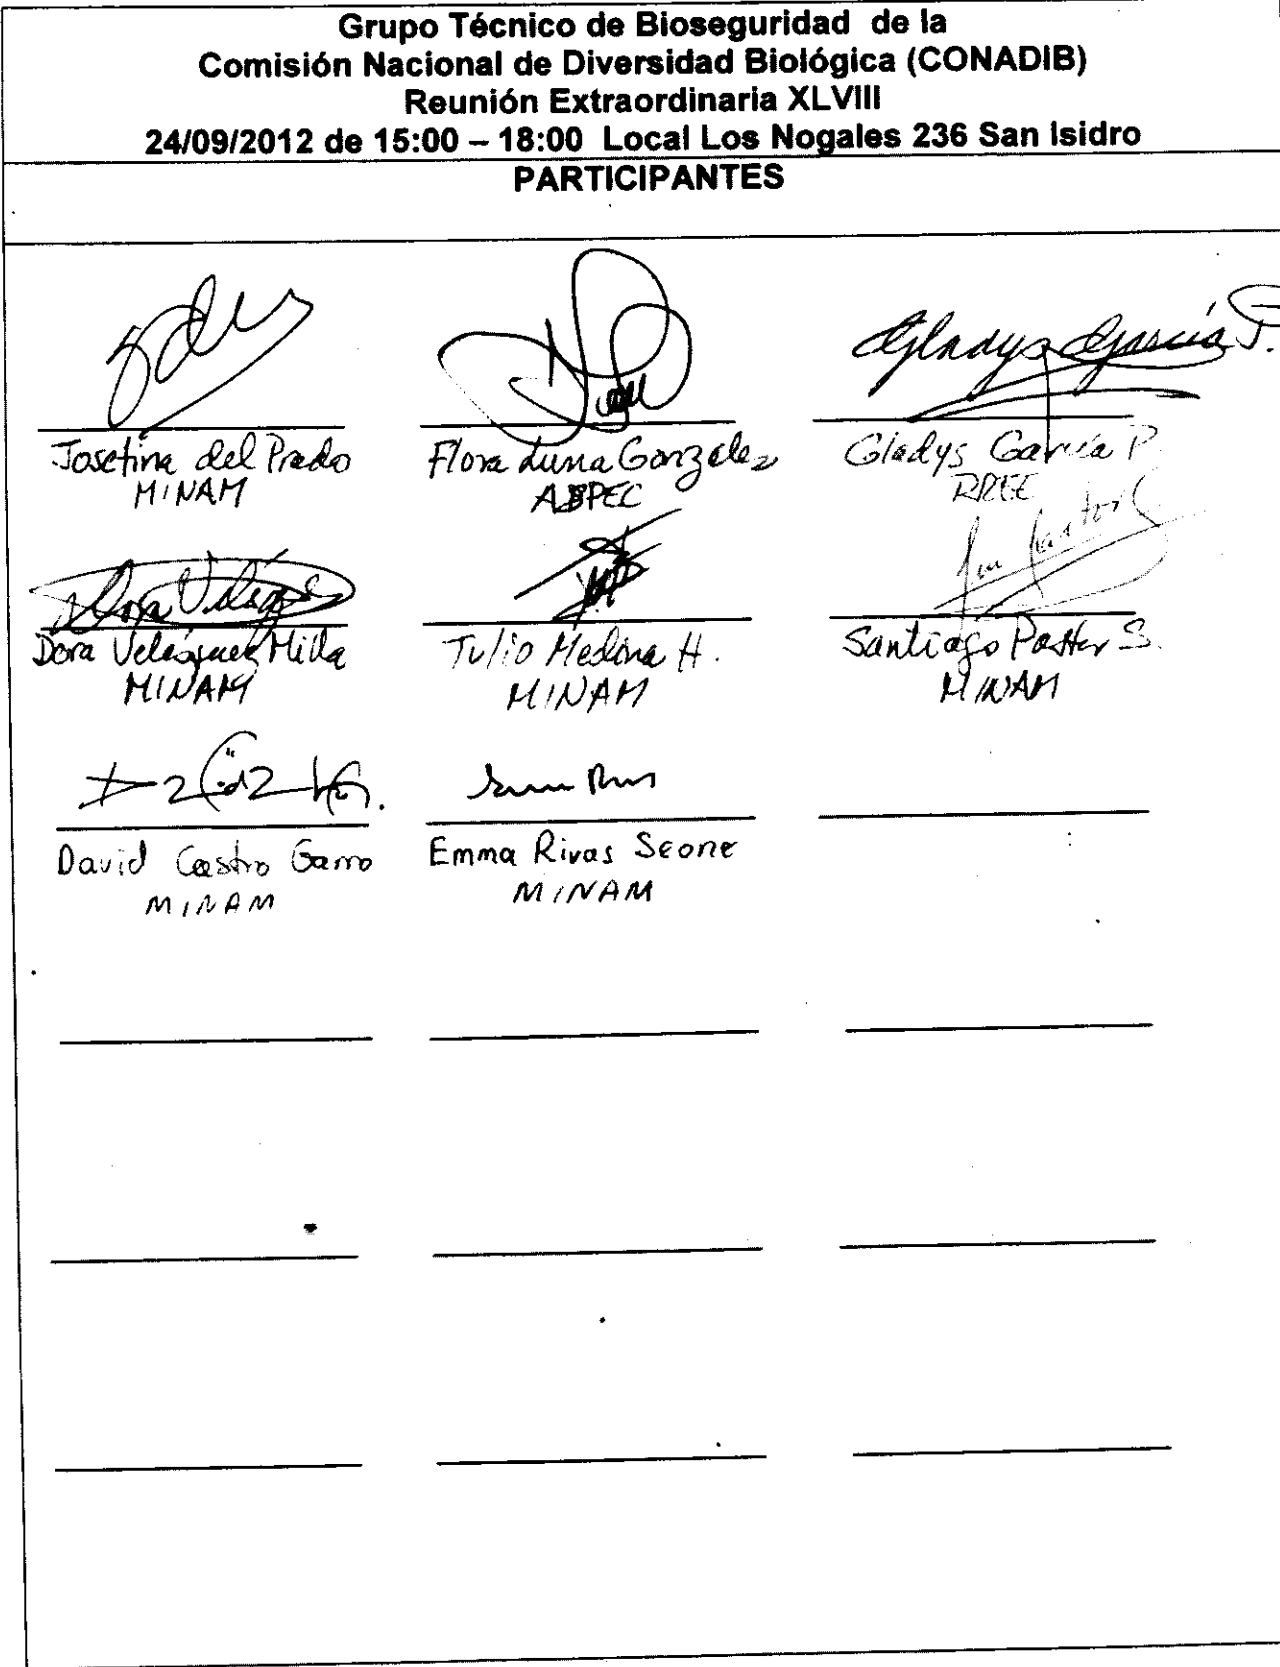 Grupo Técnico de Bioseguridad de la
Comisión Nacional de Diversidad Biológica (CONADIB)
Reunión Extraordinaria XLVIII
24/09/2012 de 15:00 – 18:00 Local Los Nogales 236 San Isidro
PARTICIPANTES
Gladys García P.
Josefina del Prado
MINAM
Flora Luna Gonzalez
ABPEC
Gladys García P.
RREE
Dora Velásquez
Dora Velásquez Milla
MINAM
Tulio Medina H.
MINAM
Santiago Pastor S.
MINAM
David Castro Garro
MINAM
Emma Rivas Seone
MINAM